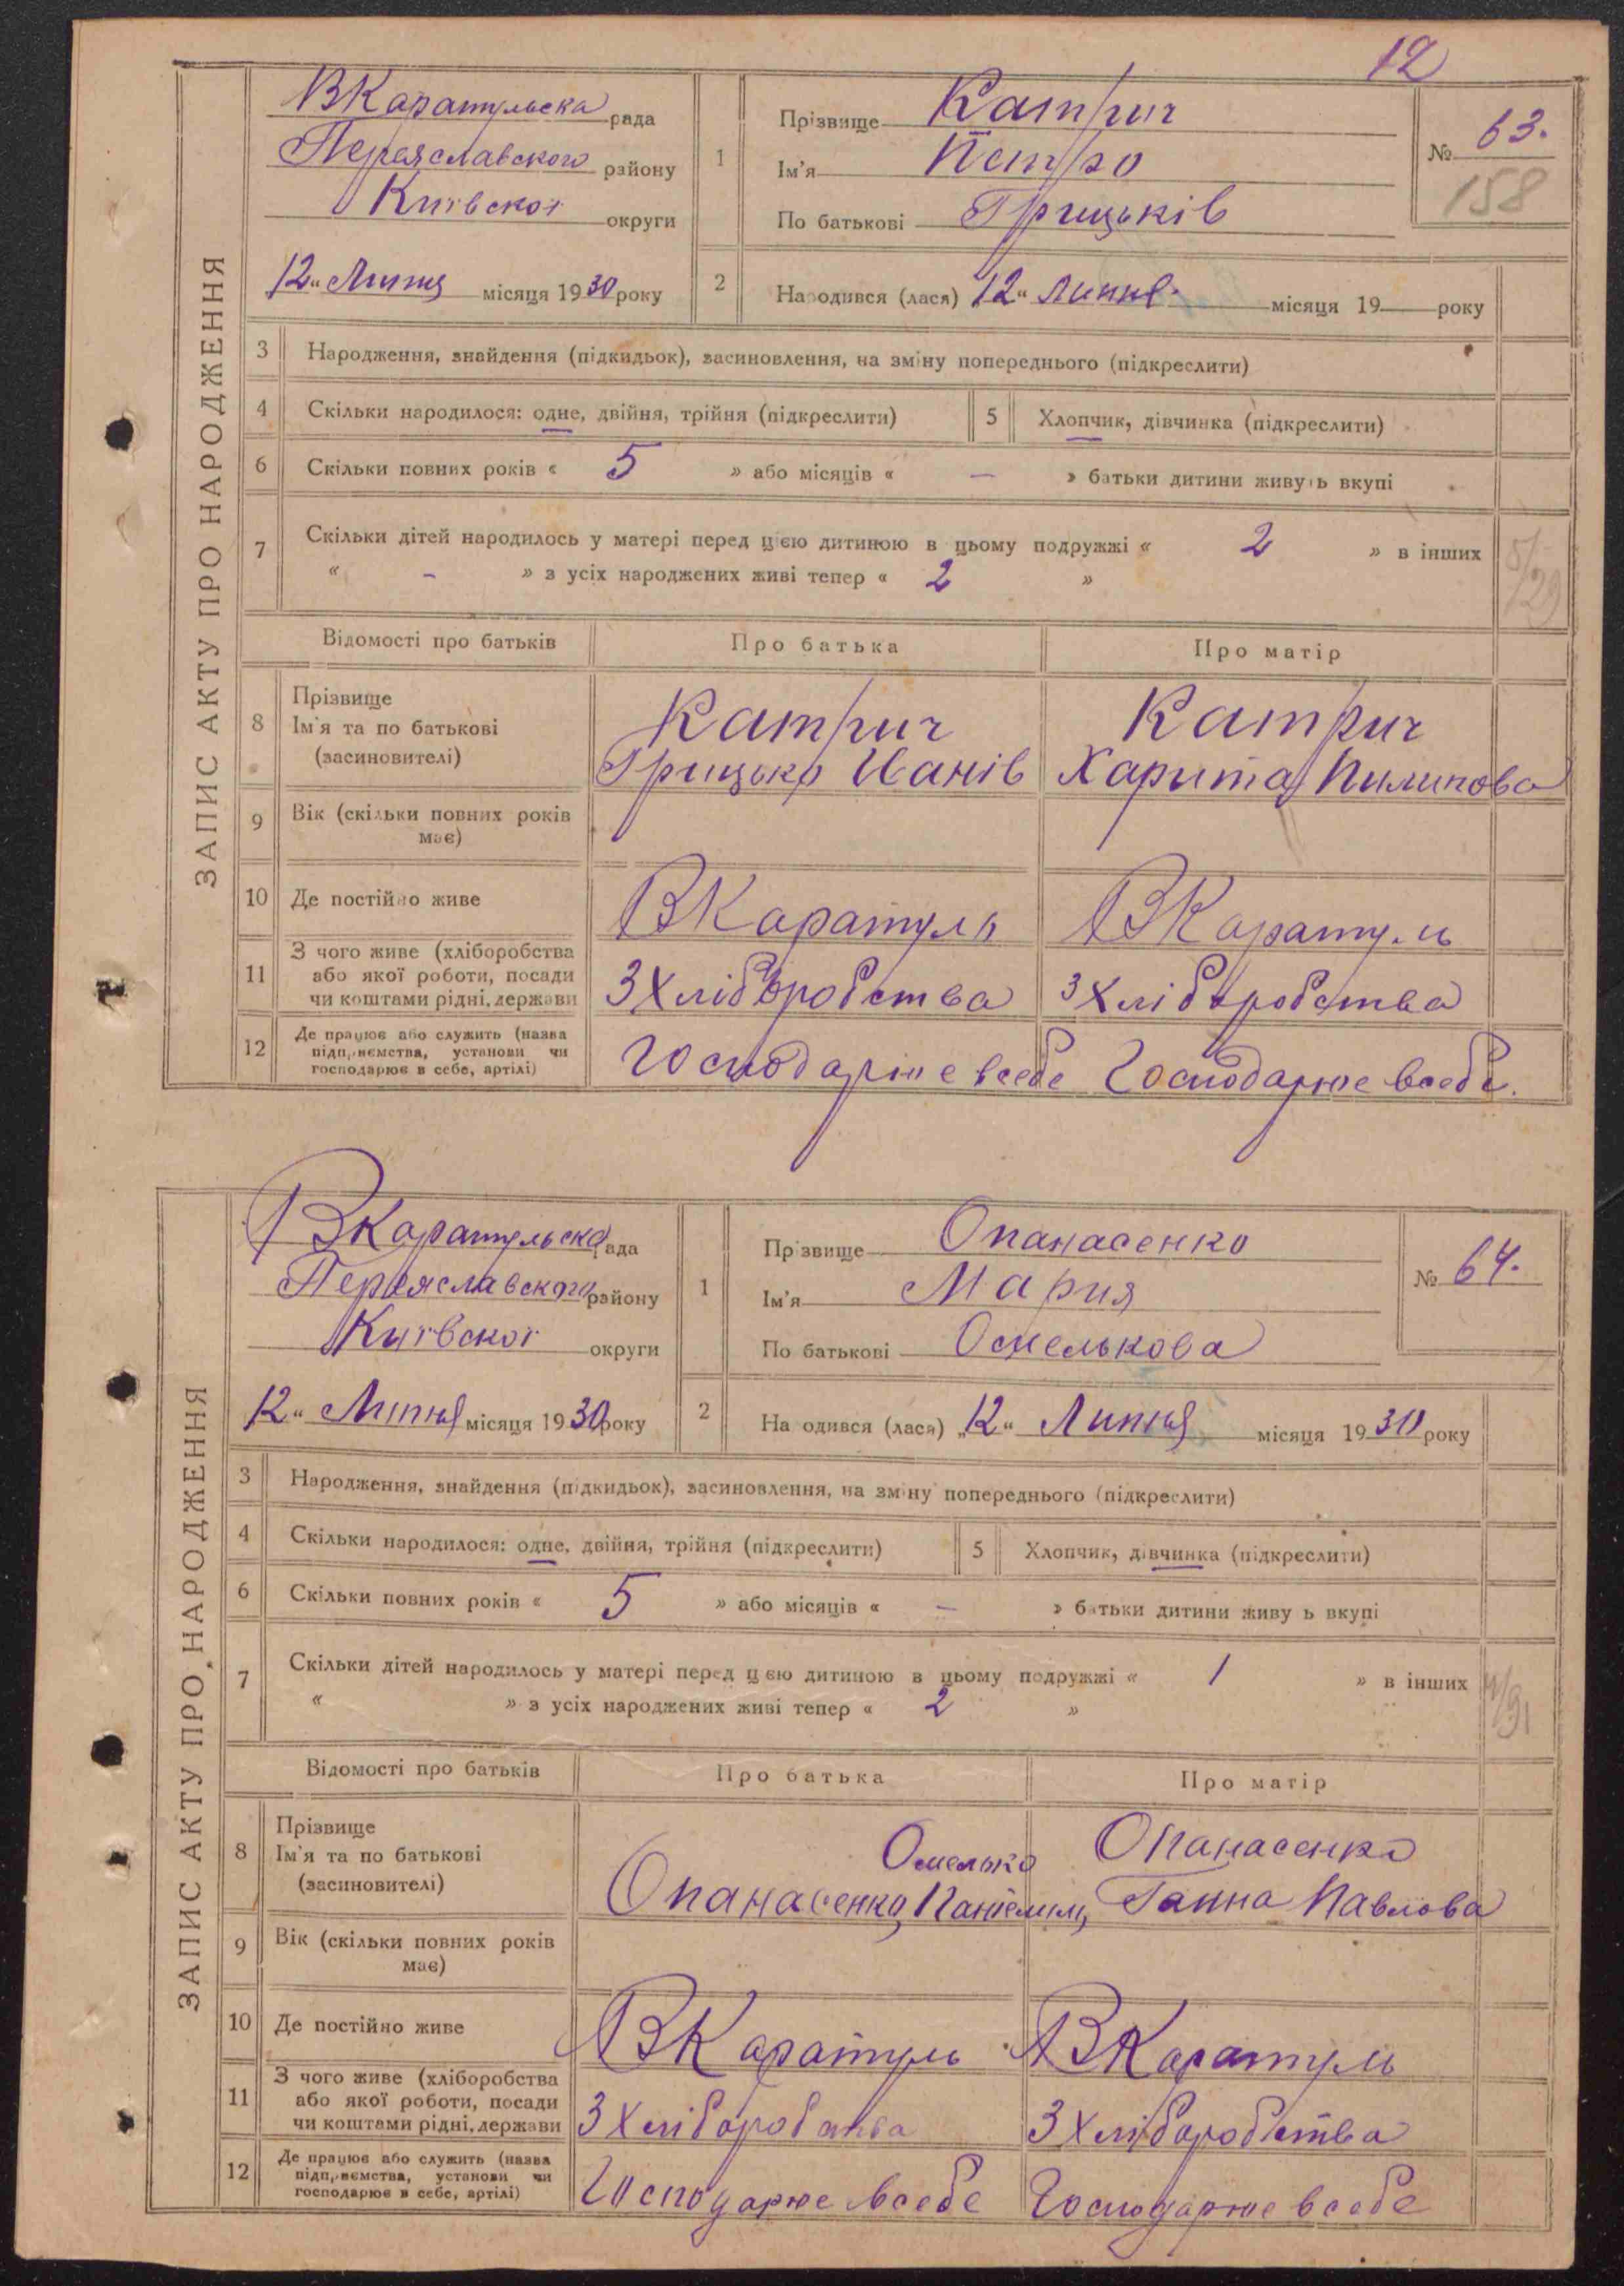 12
ЗАПИС АКТУ ПРО НАРОДЖЕННЯ
ВКаратульска рада
Переяславского району
Київскої округи
12 „ Липня місяця 1930 року
1
Прізвище Катрич
Ім'я Петро
По батькові Грицьків
№ 63.
158
2 Народився (лася) 12 „ Липня місяця 19 року
3 Народження, знайдення (підкидьок), засиновлення, на зміну попереднього (підкреслити)
4 Скільки народилося: одне, двійня, трійня (підкреслити) 5 Хлопчик, дівчинка (підкреслити)
6 Скільки повних років « 5 » або місяців « — » батьки дитини живуть вкупі
7 Скільки дітей народилось у матері перед цією дитиною в цьому подружжі « 2 » в інших
« - » з усіх народжених живі тепер « 2 »
5/29
Відомості про батьків Про батька Про матір
8 Прізвище
Ім'я та по батькові
(засиновителі)
Катрич
Грицько Иванів
Катрич
Харита Пилипова
9 Вік (скільки повних років
має)
10 Де постійно живе ВКаратуль ВКаратуль
11 З чого живе (хліборобства
або якої роботи, посади
чи коштами рідні, держави
З Хліборобства З Хліборобства
12 Де працює або служить (назва
підприємства, установи чи
господарює в себе, артілі)
Господарює всебе Господарює всебе.
ЗАПИС АКТУ ПРО НАРОДЖЕННЯ
ВКаратульска рада
Переяславского району
Київскої округи
12 „ Липня місяця 1930 року
1
Прізвище Опанасенко
Ім'я Мария
По батькові Омелькова
№ 64.
2 Народився (лася) „12 „ Липня місяця 1930 року
3 Народження, знайдення (підкидьок), засиновлення, на зміну попереднього (підкреслити)
4 Скільки народилося: одне, двійня, трійня (підкреслити) 5 Хлопчик, дівчинка (підкреслити)
6 Скільки повних років « 5 » або місяців « — » батьки дитини живуть вкупі
7 Скільки дітей народилось у матері перед цією дитиною в цьому подружжі « 1 » в інших
« » з усіх народжених живі тепер « 2 »
Відомості про батьків Про батька Про матір
8 Прізвище
Ім'я та по батькові
(засиновителі)
Омелько
Опанасенко
Опанасенко
Ганна Павлова
9 Вік (скільки повних років
має)
10 Де постійно живе ВКаратуль ВКаратуль
11 З чого живе (хліборобства
або якої роботи, посади
чи коштами рідні, держави
З Хліборобства З Хліборобства
12 Де працює або служить (назва
підприємства, установи чи
господарює в себе, артілі)
Господарює всебе Господарює всебе